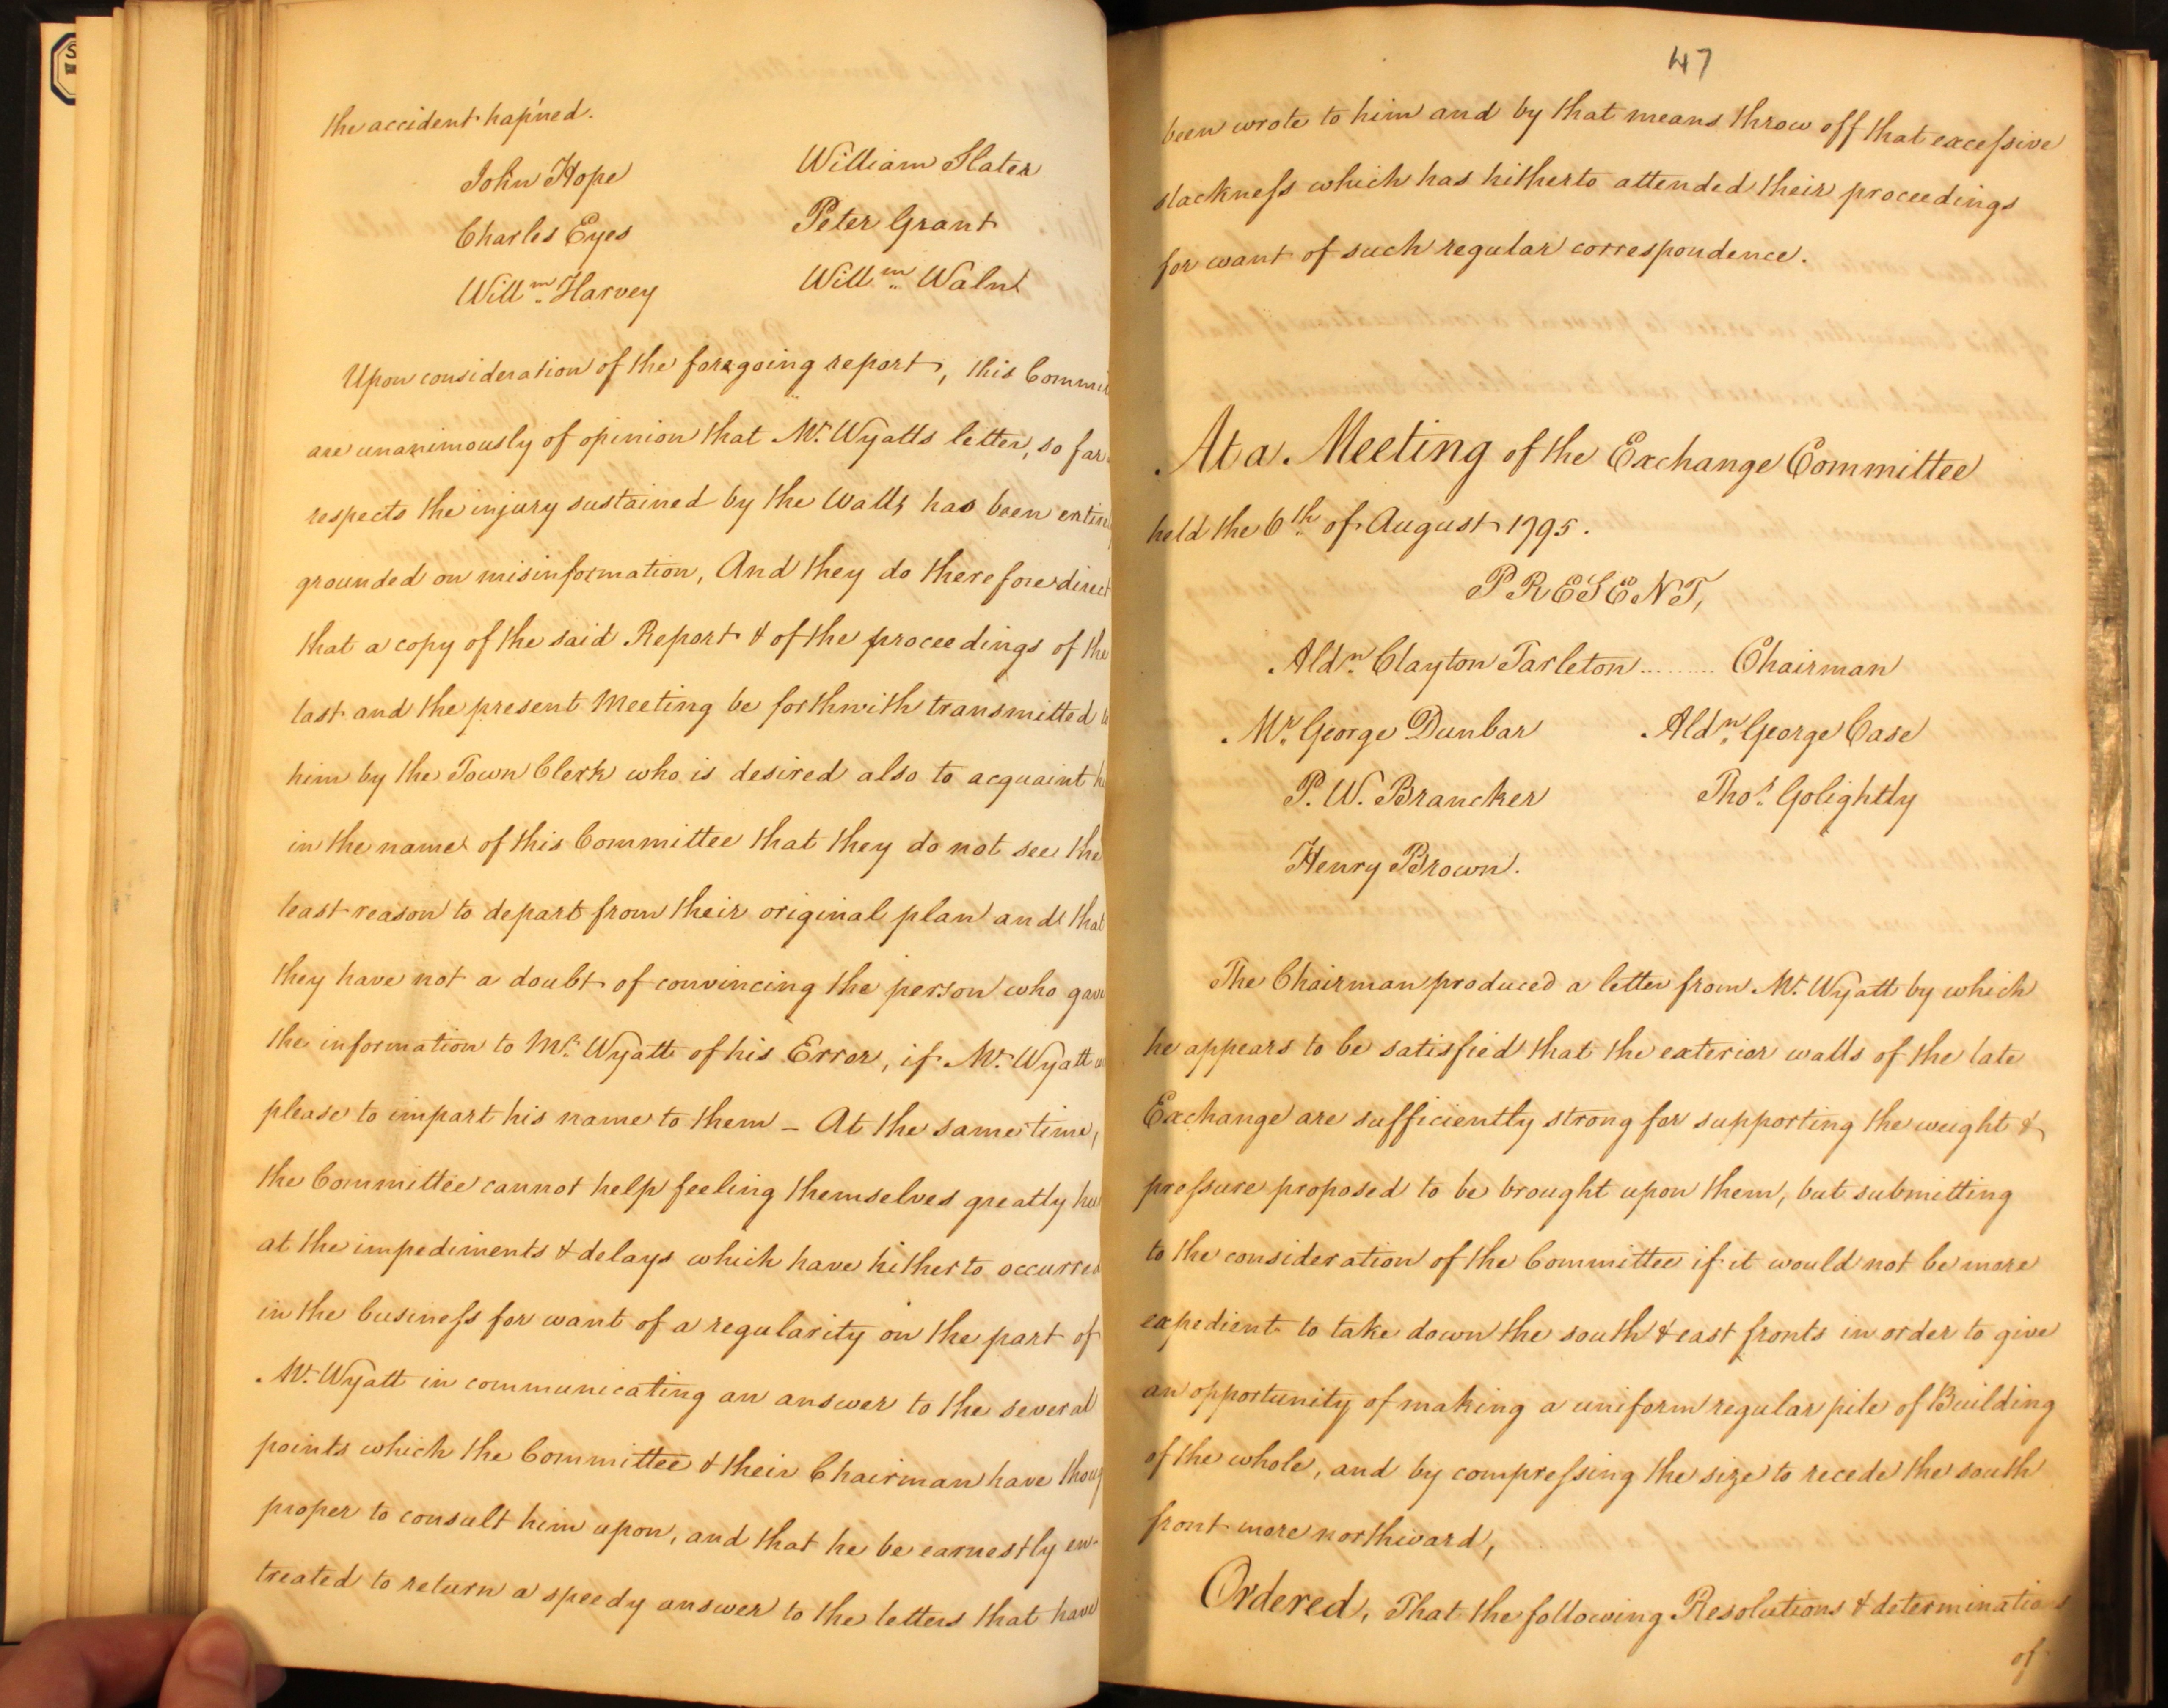 the accident hap'ned.
John Hope William Slater
Charles Eyes Peter Grant
Willm. Harvey Willm.
Upon consideration of the foregoing report, this Commi
are unanimously of opinion that Mr. Wyatts letter, so far
respects the injury sustained by the Walls has been entire
grounded on misinformation, And they do therefore direct
that a copy of the said Report & of the proceedings of the
last and the present Meeting be forthwith transmitted to
him by the Town Clerk who is desired also to acquaint h
in the name of this Committee that they do not see the
least reason to depart from their original plan and that
they have not a doubt of convincing the person who gave
the information to Mr. Wyatt of his Error, if Mr. Wyatt w
please to impart his name to them - At the same time,
the Committee cannot help feeling themselves greatly hu
at the impediments & delays which have hitherto occurred
in the business for want of a regularity on the part of
Mr. Wyatt in communicating an answer to the several
points which the Committee & their Chairman have thoug
proper to consult him upon, and that he be earnestly en-
treated to return a speedy answer to the letters that have
47
been wrote to him and by that means throw off that excessive
slackness which has hitherto attended their proceedings
for want of such regular correspondence.
At a Meeting of the Exchange Committee
held the 6th. of August 1795.
PRESENT,
Aldn. Clayton Tarleton ......... Chairman
Mr. George Dunbar Aldn. George Case
P. W. Brancker Thos. Golightly
Henry Brown.
The Chairman produced a letter from Mr. Wyatt by which
he appears to be satisfied that the exterior walls of the late
Exchange are sufficiently strong for supporting the weight &
pressure proposed to be brought upon them, but submitting
to the consideration of the Committee if it would not be more
expedient to take down the south & east fronts in order to give
an opportunity of making a uniform regular pile of Building
of the whole, and by compressing the size to recede the south
front more northward,
Ordered, That the following Resolutions & determinations
of